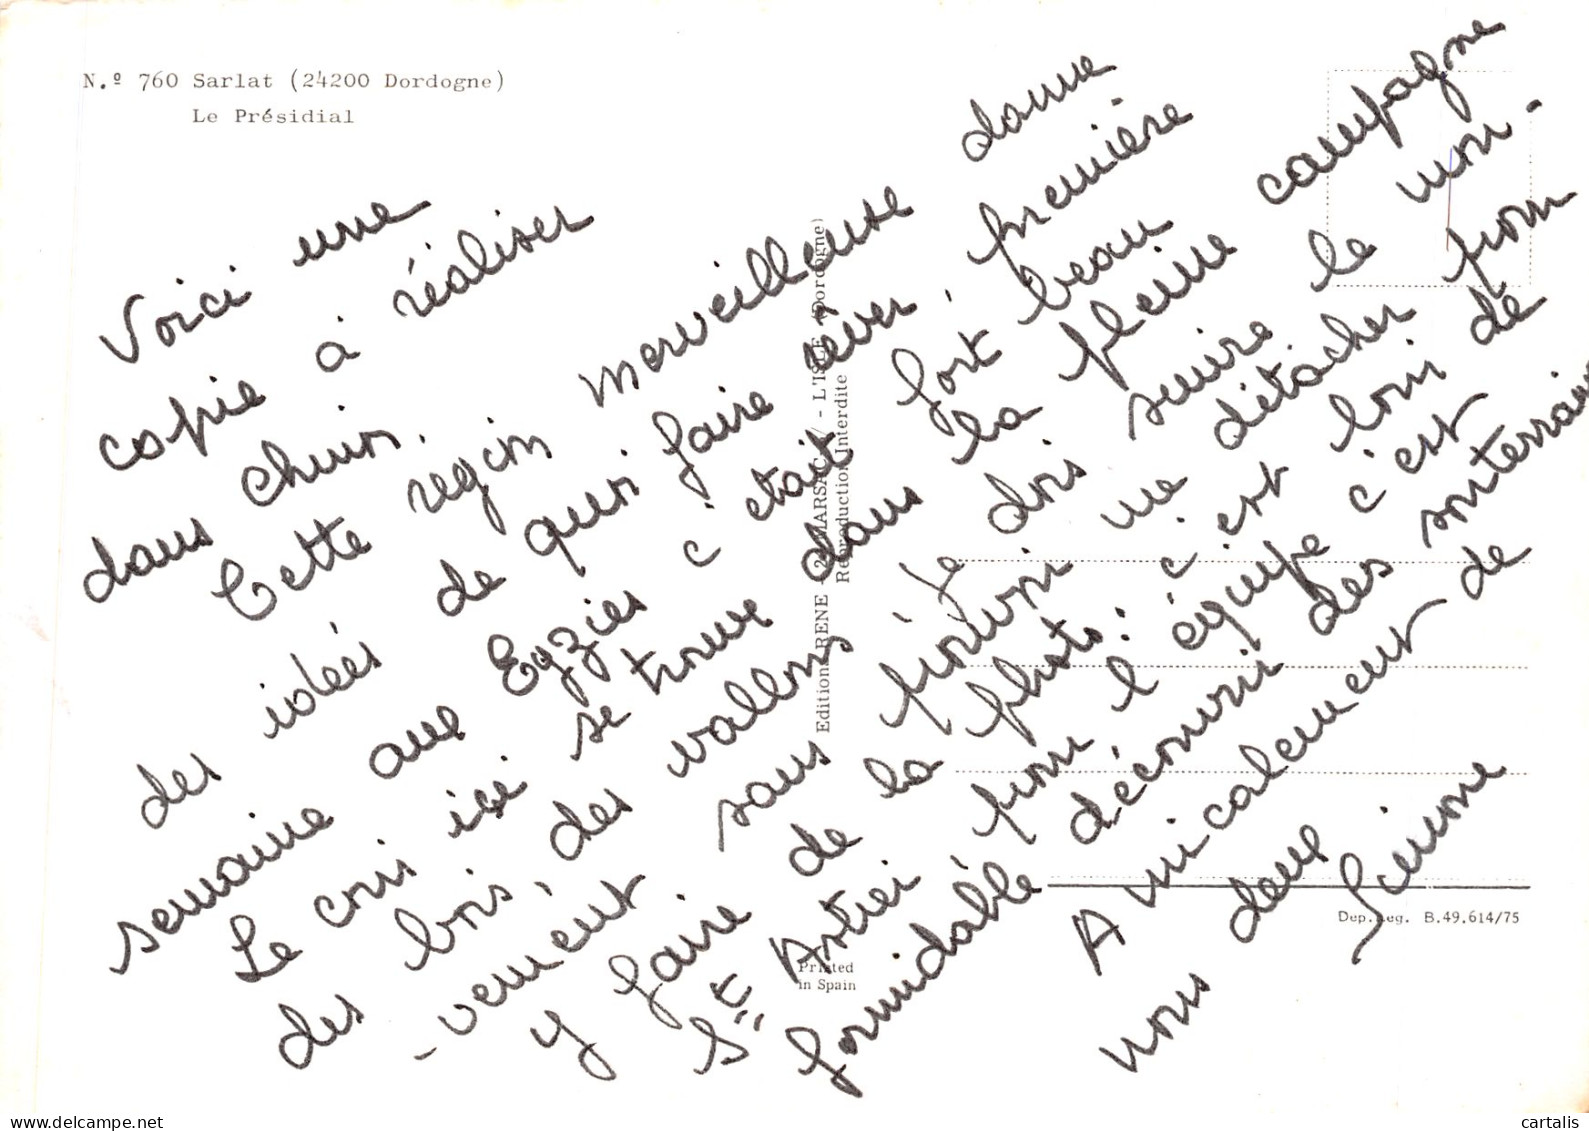 N.º 760 Sarlat (24200 Dordogne)
Le Présidial
Voici une
copie à réaliser
dans Chinon.
Cette region merveilleuse donne
des idées de quoi faire rêver, première
semaine aux Eyzies c'était fort beau
Le cours ici se trouve dans la pleine campagne
des bois, des vallons je dois suivre le mou-
-vement sans pouvoir me détacher pour
y faire de la photo : c'est loin de
St Astier pour l'équipe c'est
formidable découvrir des souterrains
Amicalement de
nous deux Simone
Editions RENE - MARSAC - L'ISLE (Dordogne)
Reproduction Interdite
Printed
in Spain
Dep. Leg. B.49.614/75
cartalis